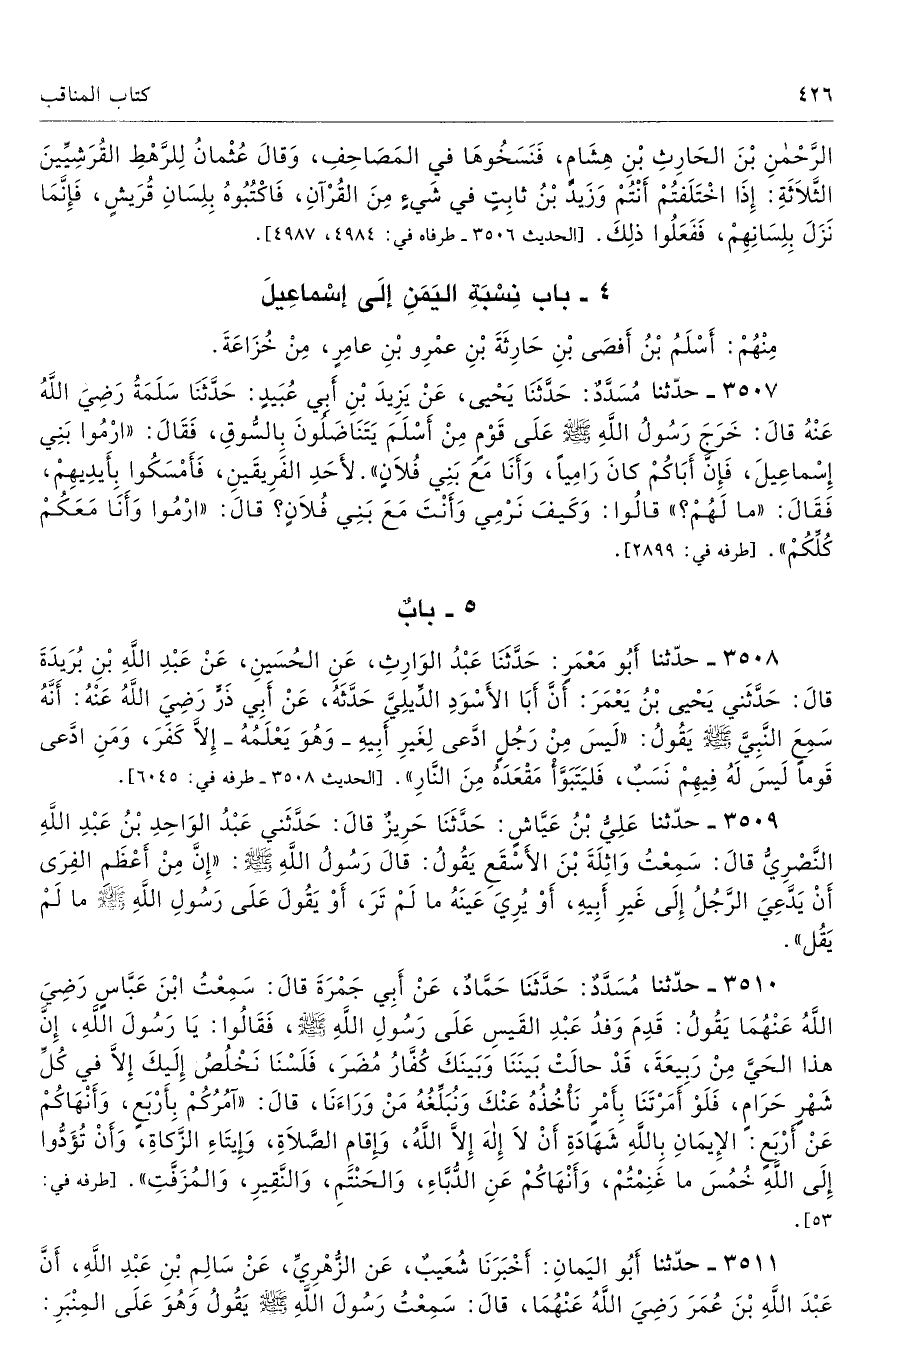 ٤٢٦ كتاب المناقب
الرَّحْمٰنِ بْنَ الحَارِثِ بْنِ هِشَامٍ، فَنَسَخُوهَا في المَصَاحِفِ، وَقالَ عُثْمانُ لِلرَّهْطِ القُرَشِيِّينَ
الثَّلاَثَةِ: إِذَا اخْتَلَفتُمْ أَنْتُمْ وَزَيدُ بْنُ ثابِتٍ في شَيءٍ مِنَ القُرْآنِ، فَاكْتُبُوهُ بِلِسَانِ قُرَيشٍ، فَإِنَّمَا
نَزَلَ بِلِسَانِهِمْ، فَفَعَلُوا ذلِكَ. [الحديث ٣٥٠٦ ـ طرفاه في: ٤٩٨٤، ٤٩٨٧].
٤ ـ باب نِسْبَةِ اليَمَنِ إلَى إسْماعِيلَ
مِنْهُمْ: أَسْلَمُ بْنُ أَفصَى بْنِ حَارِثَةَ بْنِ عمْرِو بْنِ عامِرٍ، مِنْ خُزَاعَةَ.
٣٥٠٧ ـ حدّثنا مُسَدَّدٌ: حَدَّثَنَا يَحْيى، عَنْ يَزِيدَ بْنِ أَبِي عُبَيدٍ: حَدَّثَنَا سَلَمَةُ رَضِيَ اللَّهُ
عَنْهُ قالَ: خَرَجَ رَسُولُ اللَّهِ ﷺ عَلَى قَوْمٍ مِنْ أَسْلَمَ يَتَنَاضَلُونَ بِالسُّوقِ، فَقَالَ: «ارْمُوا بَنِي
إِسْماعِيلَ، فَإِنَّ أَبَاكُمْ كانَ رَامِياً، وَأَنَا مَعَ بَنِي فُلاَنٍ». لأَحَدِ الفَرِيقَينِ، فَأَمْسَكُوا بِأَيدِيهِمْ،
فَقَالَ: «ما لَهُمْ؟» قالُوا: وَكَيفَ نَرْمِي وَأَنْتَ مَعَ بَنِي فُلاَنٍ؟ قالَ: «ارْمُوا وَأَنَا مَعَكُمْ
كُلِّكُمْ». [طرفه في: ٢٨٩٩].
٥ ـ بابٌ
٣٥٠٨ ـ حدّثنا أَبُو مَعْمَرٍ: حَدَّثَنَا عَبْدُ الوَارِثِ، عَنِ الحُسَينِ، عَنْ عَبْدِ اللَّهِ بْنِ بُرَيدَةَ
قالَ: حَدَّثَنِي يَحْيى بْنُ يَعْمَرَ: أَنَّ أَبَا الأَسْوَدِ الدِّيلِيَّ حَدَّثَهُ، عَنْ أَبِي ذَرٍّ رَضِيَ اللَّهُ عَنْهُ: أَنَّهُ
سَمِعَ النَّبِيَّ ﷺ يَقُولُ: «لَيسَ مِنْ رَجُلٍ ادَّعى لِغَيرِ أَبِيهِ ـ وَهُوَ يَعْلَمُهُ ـ إِلاَّ كَفَرَ، وَمَنِ ادَّعى
قَوماً لَيسَ لَهُ فِيهِمْ نَسَبٌ، فَليَتَبَوَّأْ مَقْعَدَهُ مِنَ النَّارِ». [الحديث ٣٥٠٨ ـ طرفه في: ٦٠٤٥].
٣٥٠٩ ـ حدّثنا عَلِيُّ بْنُ عَيَّاشٍ: حَدَّثَنَا حَرِيزٌ قالَ: حَدَّثَنِي عَبْدُ الوَاحِدِ بْنُ عَبْدِ اللَّهِ
النَّصْرِيُّ قالَ: سَمِعْتُ وَاثِلَةَ بْنَ الأَسْقَعِ يَقُولُ: قالَ رَسُولُ اللَّهِ ﷺ: «إِنَّ مِنْ أَعْظَمِ الفِرَى
أَنْ يَدَّعِيَ الرَّجُلُ إِلَى غَيرِ أَبِيهِ، أَوْ يُرِيَ عَينَهُ ما لَمْ تَرَ، أَوْ يَقُولَ عَلَى رَسُولِ اللَّهِ ﷺ ما لَمْ
يَقُل».
٣٥١٠ ـ حدّثنا مُسَدَّدٌ: حَدَّثَنَا حَمَّادٌ، عَنْ أَبِي جَمْرَةَ قالَ: سَمِعْتُ ابْنَ عَبَّاسٍ رَضِيَ
اللَّهُ عَنْهُمَا يَقُولُ: قَدِمَ وَفدُ عَبْدِ القَيسِ عَلَى رَسُولِ اللَّهِ ﷺ، فَقَالُوا: يَا رَسُولَ اللَّهِ، إِنَّ
هذا الحَيَّ مِنْ رَبِيعَةَ، قَدْ حالَتْ بَينَنَا وَبَينَكَ كُفَّارُ مُضَرَ، فَلَسْنَا نَخْلُصُ إِلَيكَ إِلاَّ في كُلِّ
شَهْرٍ حَرَامٍ، فَلَوْ أَمَرْتَنَا بِأَمْرٍ نَأْخُذُهُ عَنْكَ وَنُبَلِّغُهُ مَنْ وَرَاءَنَا، قالَ: «آمُرُكُمْ بِأَرْبَعٍ، وَأَنْهَاكُمْ
عَنْ أَرْبَعٍ: الإِيمَانِ بِاللَّهِ شَهَادَةِ أَنْ لاَ إِلٰهَ إِلاَّ اللَّهُ، وَإِقامِ الصَّلاَةِ، وَإِيتَاءِ الزَّكاةِ، وَأَنْ تُؤَدُّوا
إِلَى اللَّهِ خُمُسَ ما غَنِمْتُمْ، وَأَنْهَاكُمْ عَنِ الدُّبَّاءِ، وَالحَنْتَمِ، وَالنَّقِيرِ، وَالمُزَفَّتِ». [طرفه في:
٥٣].
٣٥١١ ـ حدّثنا أَبُو اليَمَانِ: أَخْبَرَنَا شُعَيبٌ، عَنِ الزُّهْرِيِّ، عَنْ سَالِمِ بْنِ عَبْدِ اللَّهِ، أَنَّ
عَبْدَ اللَّهِ بْنَ عُمَرَ رَضِيَ اللَّهُ عَنْهُمَا، قالَ: سَمِعْتُ رَسُولَ اللَّهِ ﷺ يَقُولُ وَهُوَ عَلَى المِنْبَرِ: